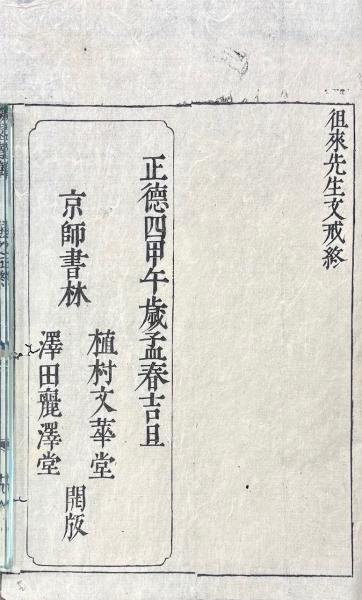 徂來先生文戒終
正德四甲午歲孟春吉旦
京師書林
植村文華堂
澤田麗澤堂
開版